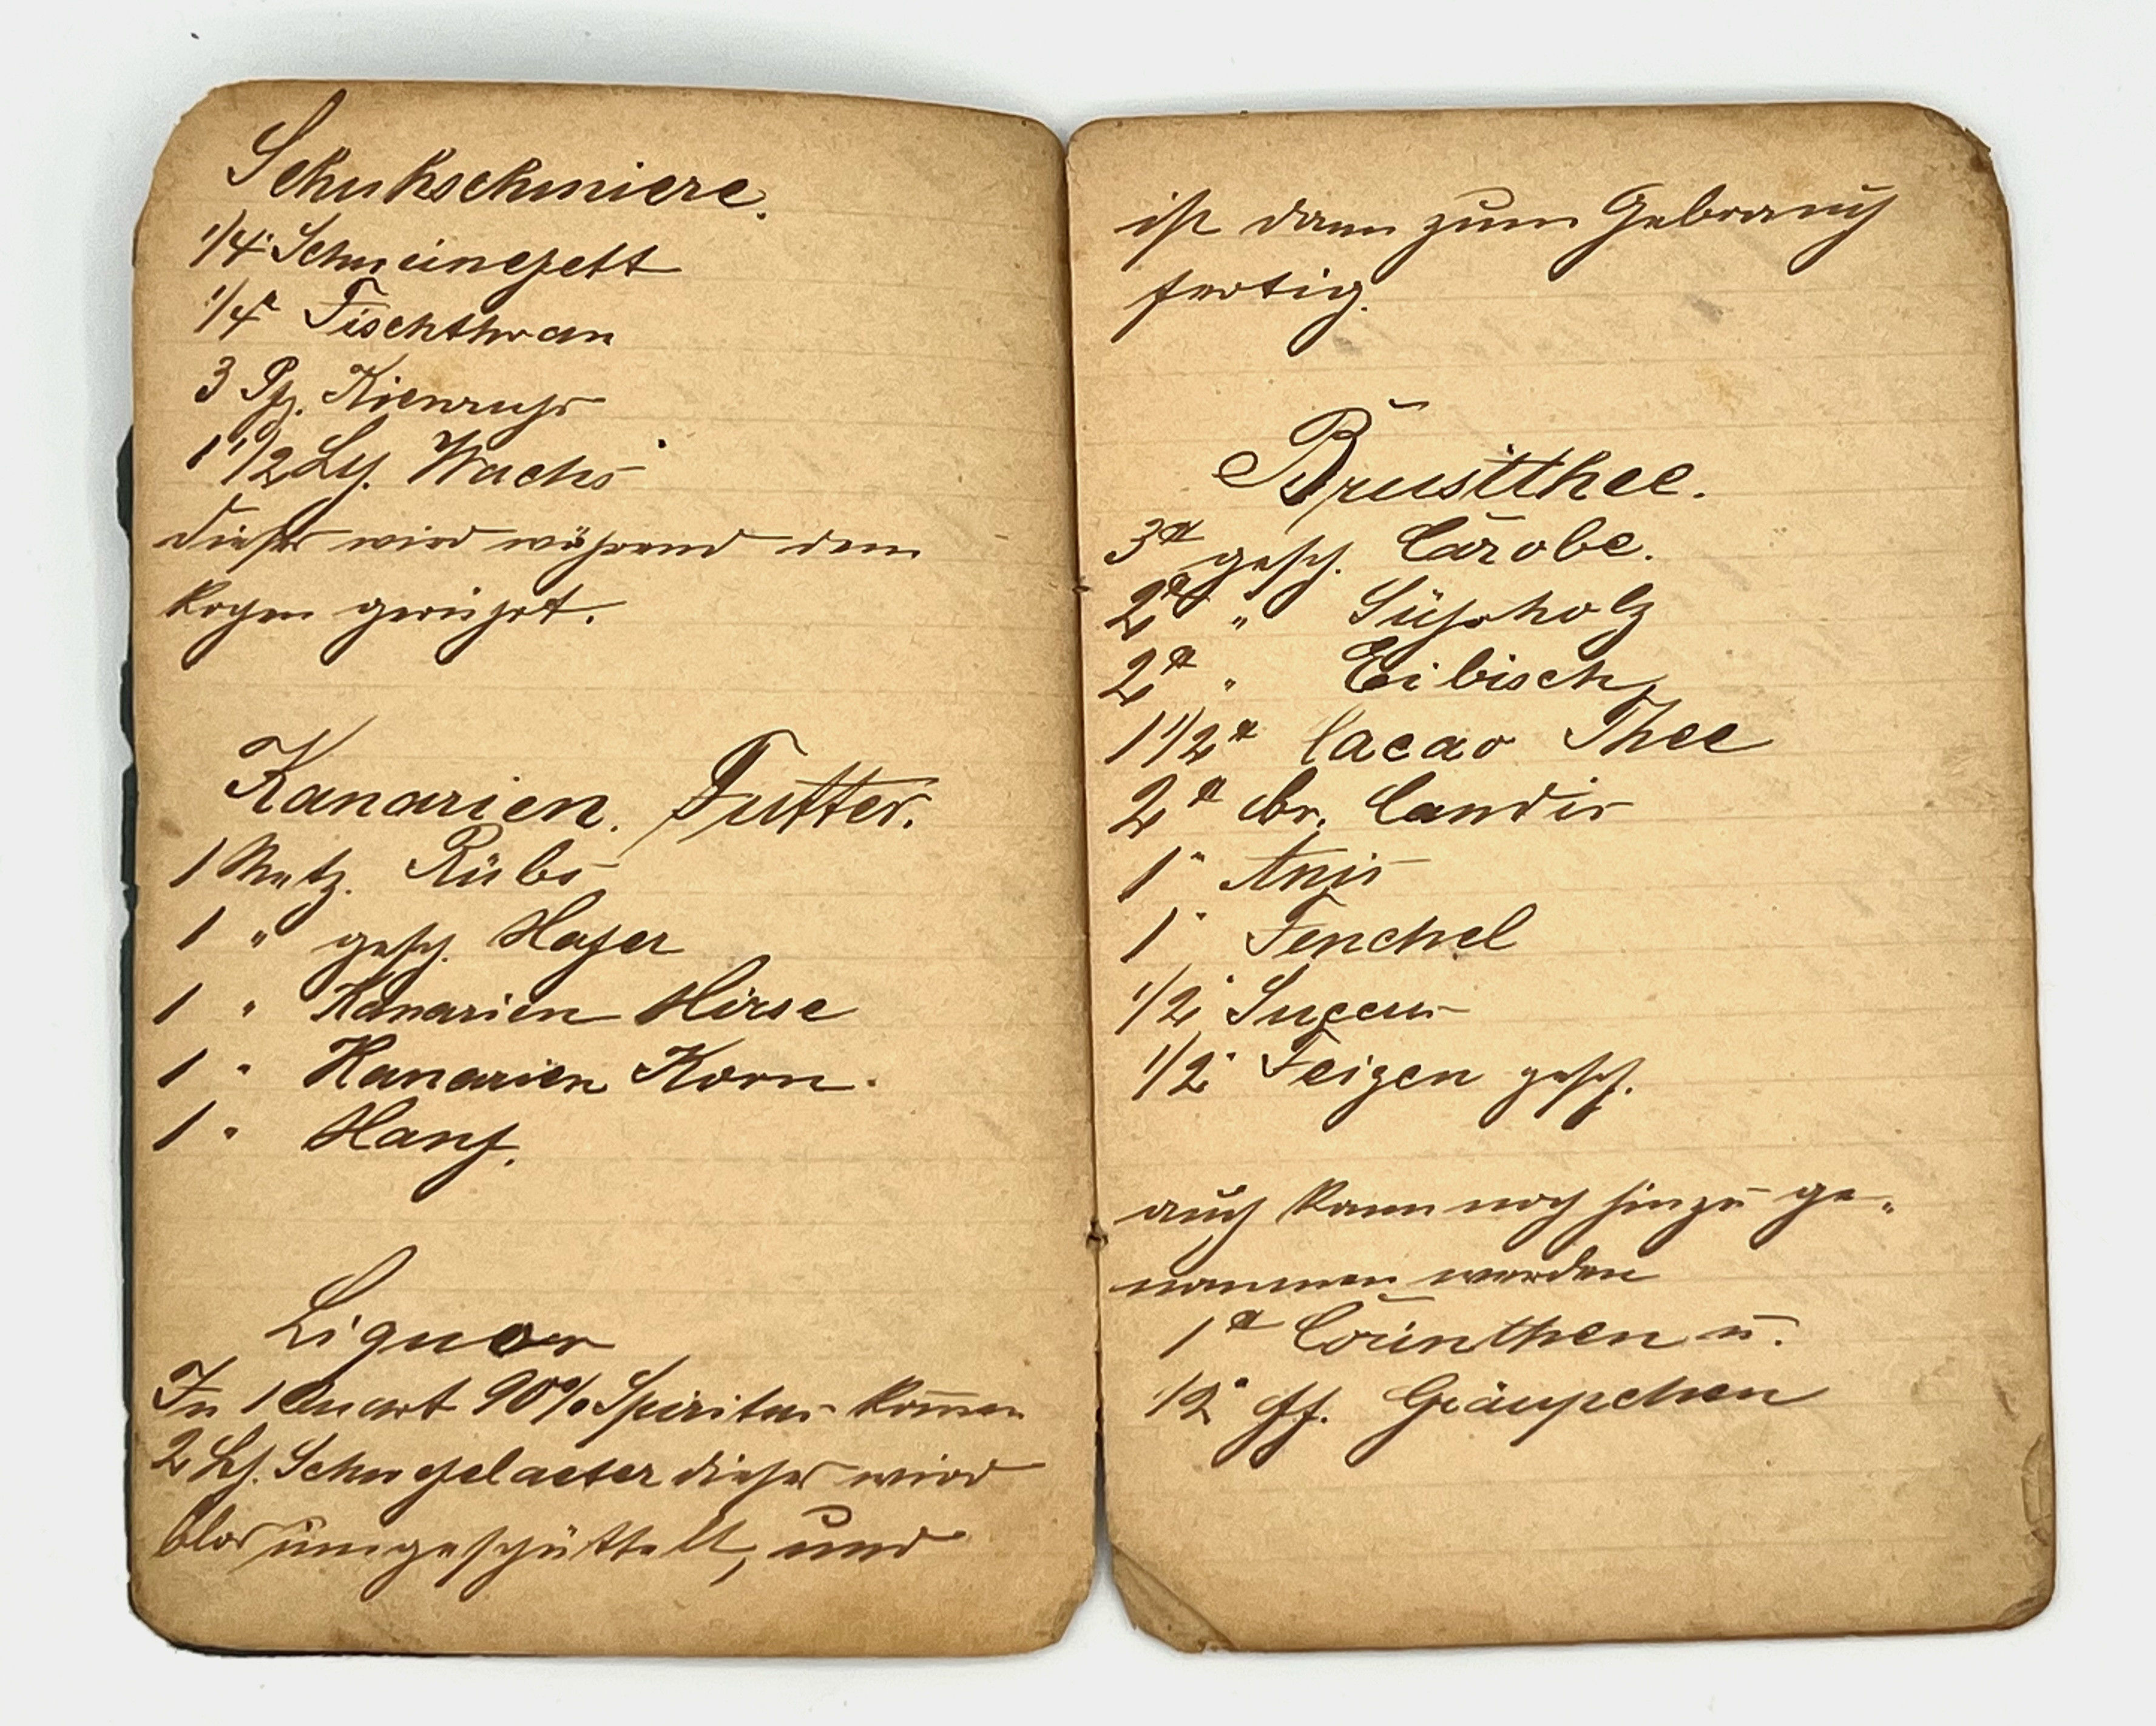 Schuhschmiere.
1/4 ℔ Schweinefett
1/4 ℔ Fischthran
3 Pfg. Kienruß
1 1/2 Lth. Wachs
dieses wird während dem
kochen gerührt.
Kanarien. Futter.
1 Metz. Rübs
1 " gesch. Hafer
1 " Kanarien Hirse
1 " Kanarien Korn.
1 " Hanf.
Liquor
In 1 Quart 90% Spiritus komen
2 Lth. Schwefelaeter dieses wird
blos umgeschüttelt, und
ist dann zum Gebrauch
fertig.
Brustthee.
3 ℔ gesch. Carobe.
2 ℔ " Süßholz
2 ℔ " Eibisch
1 1/2 ℔ Cacao Thee
2 ℔ br. Candis
1 " Anis
1 " Fenchel
1/2 "
1/2 " Feigen gesch.
auch kann noch hinzu ge-
nommen werden
1 ℔ Corinthen u.
1/2 " ff. Gräupchen